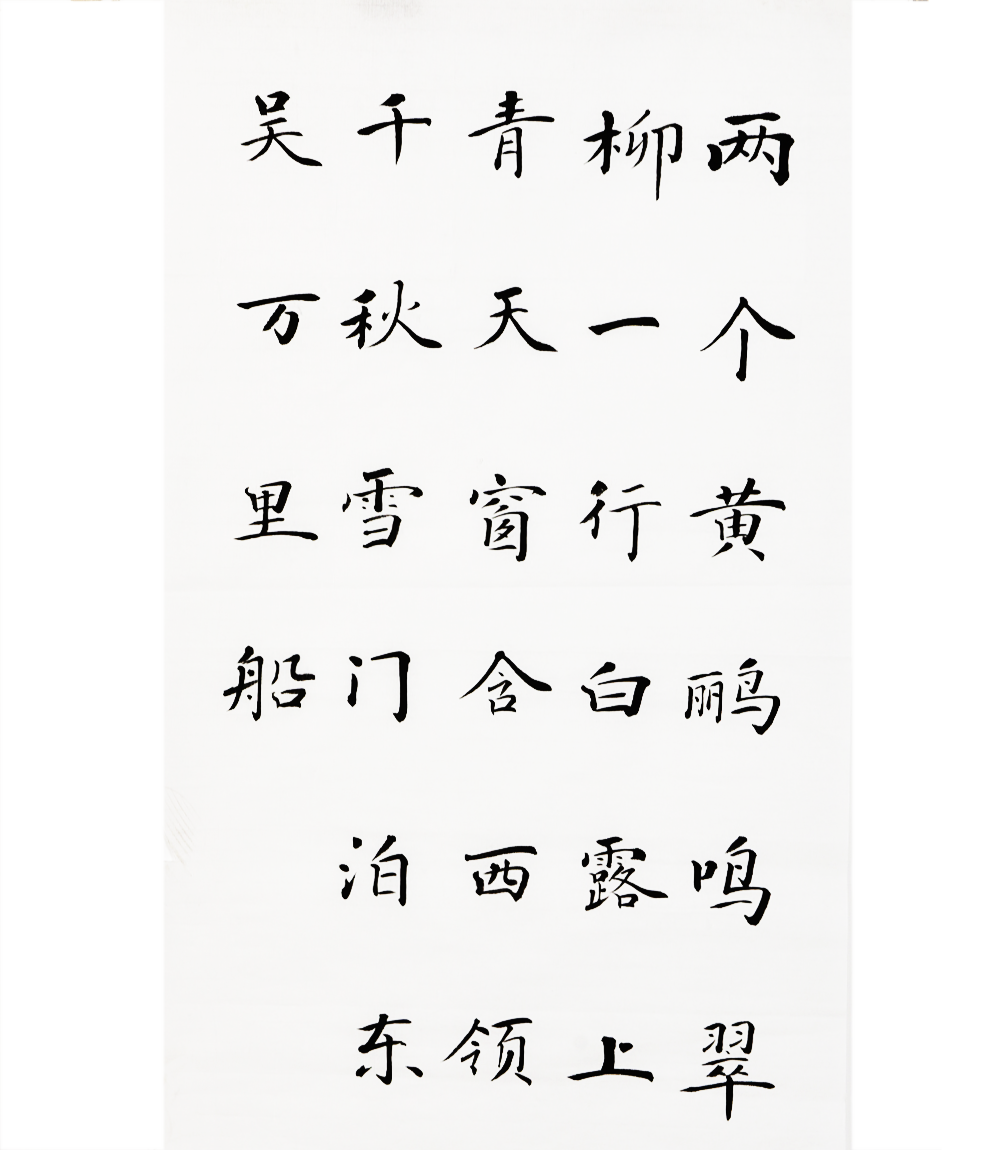 两个黄鹂鸣翠
柳一行白露上
青天窗含西领
千秋雪门泊东
吴万里船